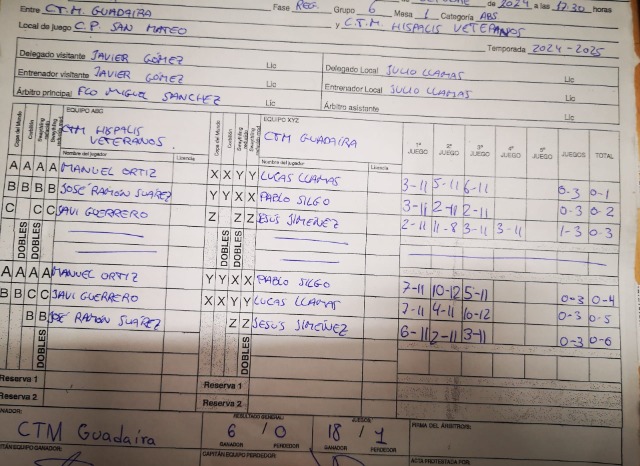 Entre C.T.M. GUADAIRA Fase REG. Grupo 6 de 2024 a las 17:30 horas
Mesa 1 Categoría ABS
y C.T.M. HISPALIS VETERANOS
Local de juego C.P. SAN MATEO
Temporada 2024-2025
Delegado visitante JAVIER GÓMEZ Lic Delegado Local JULIO LLAMAS Lic
Entrenador visitante JAVIER GÓMEZ Lic Entrenador Local JULIO LLAMAS Lic
Árbitro principal FCO MIGUEL SANCHEZ Lic Árbitro asistente Lic
EQUIPO ABC EQUIPO XYZ
CTM HISPALIS VETERANOS CTM GUADAIRA
Copa del Mundo Copa del Mundo
1º JUEGO 2º JUEGO 3º JUEGO 4º JUEGO 5º JUEGO JUEGOS TOTAL
Nombre del jugador Licencia Nombre del jugador Licencia
A A A A MANUEL ORTIZ X X Y Y LUCAS LLAMAS 3-11 5-11 6-11 0-3 0-1
B B B B JOSÉ RAMÓN SUAREZ Y Y X X PABLO SILGO 3-11 2-11 2-11 0-3 0-2
C C C JAVI GUERRERO Z Z Z JESÚS JIMENEZ 2-11 11-8 3-11 3-11 1-3 0-3
DOBLES DOBLES DOBLES DOBLES
A A A A MANUEL ORTIZ Y Y X X PABLO SILGO 7-11 10-12 5-11 0-3 0-4
B B C C JAVI GUERRERO X X Y Y LUCAS LLAMAS 7-11 4-11 10-12 0-3 0-5
B B JOSÉ RAMÓN SUAREZ Z Z JESÚS JIMEÑEZ 6-11 2-11 3-11 0-3 0-6
DOBLES DOBLES
Reserva 1 Reserva 1
Reserva 2 Reserva 2
RESULTADO GENERAL: JUEGOS: FIRMA DEL ÁRBITRO/S:
CTM Guadaira 6 / 0 18 / 1
GANADOR PERDEDOR GANADOR PERDEDOR
CAPITÁN EQUIPO PERDEDOR ACTA PROTESTADA POR: